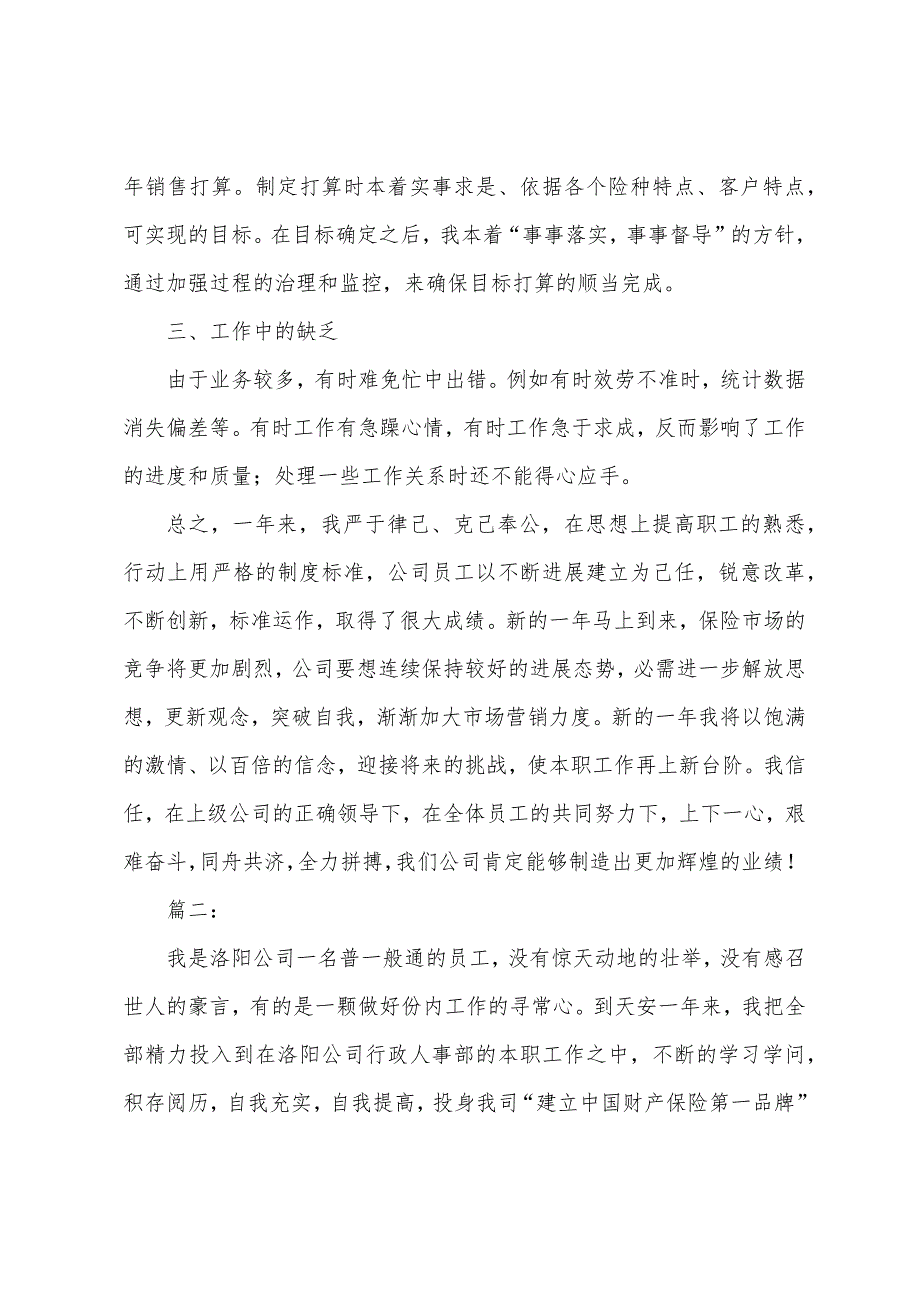 年销售打算。制定打算时本着实事求是、依据各个险种特点、客户特点，
可实现的目标。在目标确定之后，我本着“事事落实，事事督导”的方针，
通过加强过程的治理和监控，来确保目标打算的顺当完成。
三、工作中的缺乏
由于业务较多，有时难免忙中出错。例如有时效劳不准时，统计数据
消失偏差等。有时工作有急躁心情，有时工作急于求成，反而影响了工作
的进度和质量；处理一些工作关系时还不能得心应手。
总之，一年来，我严于律己、克己奉公，在思想上提高职工的熟悉，
行动上用严格的制度标准，公司员工以不断进展建立为己任，锐意改革，
不断创新，标准运作，取得了很大成绩。新的一年马上到来，保险市场的
竞争将更加剧烈，公司要想连续保持较好的进展态势，必需进一步解放思
想，更新观念，突破自我，渐渐加大市场营销力度。新的一年我将以饱满
的激情、以百倍的信念，迎接将来的挑战，使本职工作再上新台阶。我信
任，在上级公司的正确领导下，在全体员工的共同努力下，上下一心，艰
难奋斗，同舟共济，全力拼搏，我们公司肯定能够制造出更加辉煌的业绩！
篇二：
我是洛阳公司一名普一般通的员工，没有惊天动地的壮举，没有感召
世人的豪言，有的是一颗做好份内工作的寻常心。到天安一年来，我把全
部精力投入到在洛阳公司行政人事部的本职工作之中，不断的学习学问，
积存阅历，自我充实，自我提高，投身我司“建立中国财产保险第一品牌”